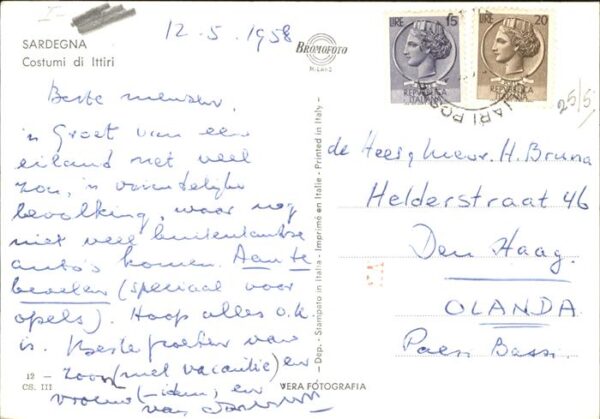 12-5-1958
SARDEGNA
Costumi di Ittiri
BROMOFOTO
MILANO
LIRE 15
REPUBBLICA
ITALIANA
LIRE 20
REPUBBLICA
ITALIANA
25/5
Beste mensen,
'n Groet van een
eiland met veel
zon, 'n vriendelijke
bevolking, waar nog
niet veel buitenlandse
auto's komen. Aan te
bevelen (speciaal voor
opels). Hoop alles o.k.
is. Beste groeten van
zoon (met vacantie) en
vrouw (-idem) en
van
de Heer & Mevr. H. Bruna
Helderstraat 46
Den Haag.
OLANDA
Paesi Bassi.
— Dep. - Stampato in Italia - Imprimé en Italie - Printed in Italy —
12 —
CS. III
VERA FOTOGRAFIA